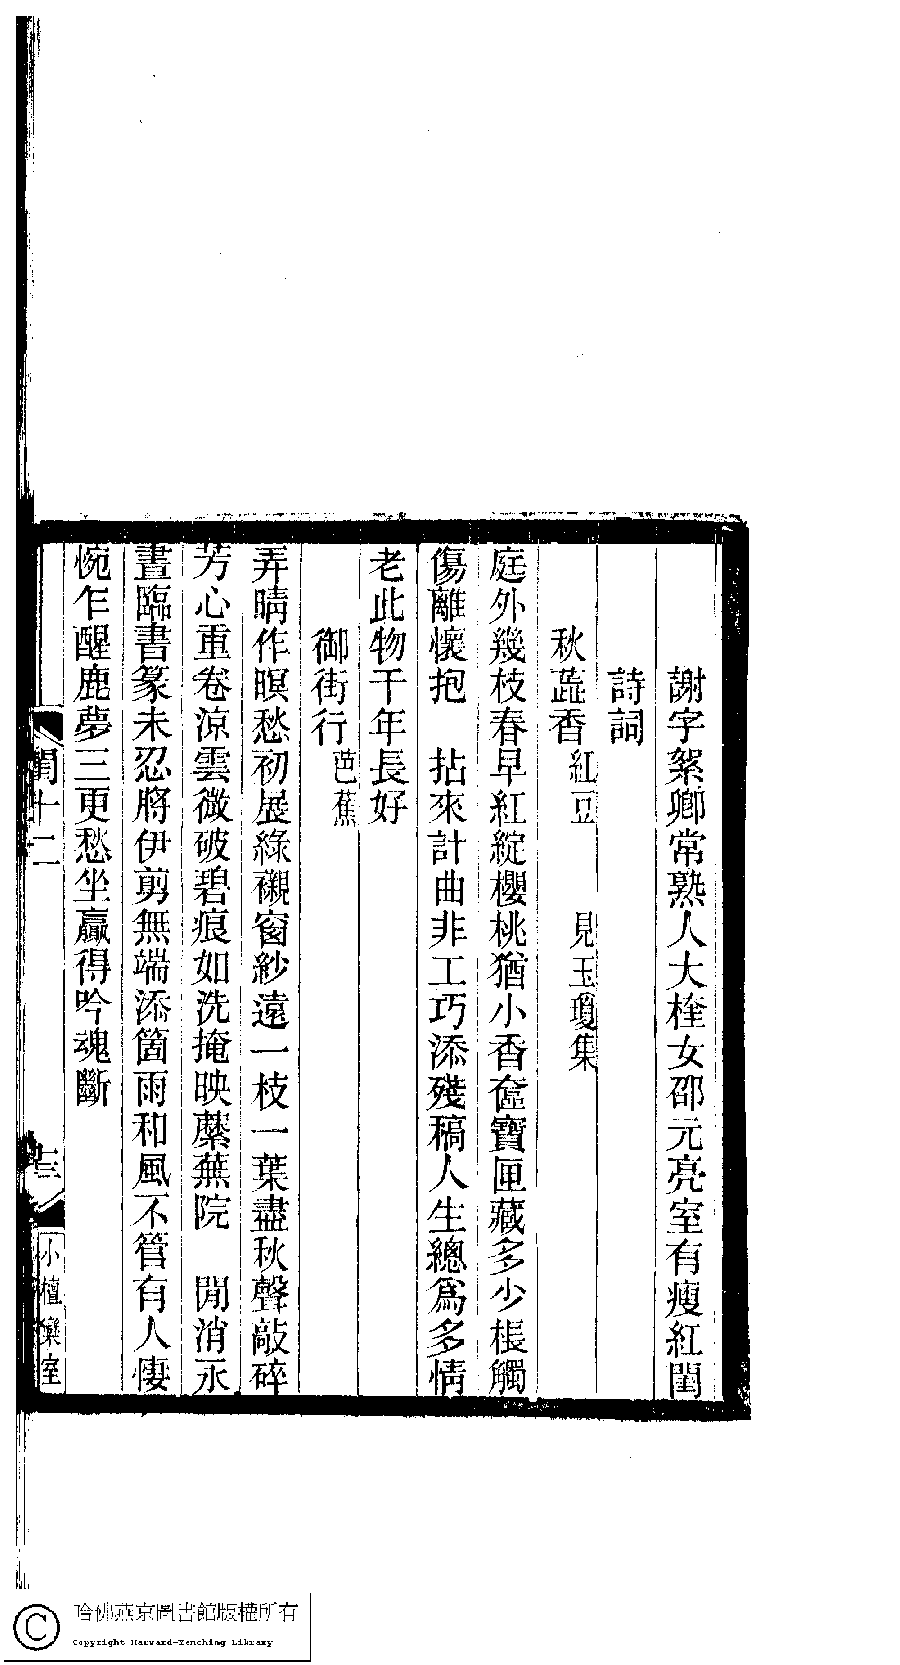 謝字絮卿常熟人大樁女邵元亮室有瘦紅閨
詩詞
秋蕊香 紅豆 見玉瓊集
庭外幾枝春早紅綻櫻桃猶小香奩寶匣藏多少棖觸
傷離懷抱 拈來計曲非工巧添殘稿人生總爲多情
老此物千年長好
御街行 芭蕉
弄晴作暝愁初展綠襯窗紗遠一枝一葉盡秋聲敲碎
芳心重卷涼雲微破碧痕如洗掩映蘼蕪院 閒消永
晝臨書篆未忍將伊剪無端添箇雨和風不管有人悽
惋乍醒鹿夢三更愁坐贏得吟魂斷
閨十二
小檀欒室
哈佛燕京圖書館版權所有
Copyright Harvard-Yenching Library